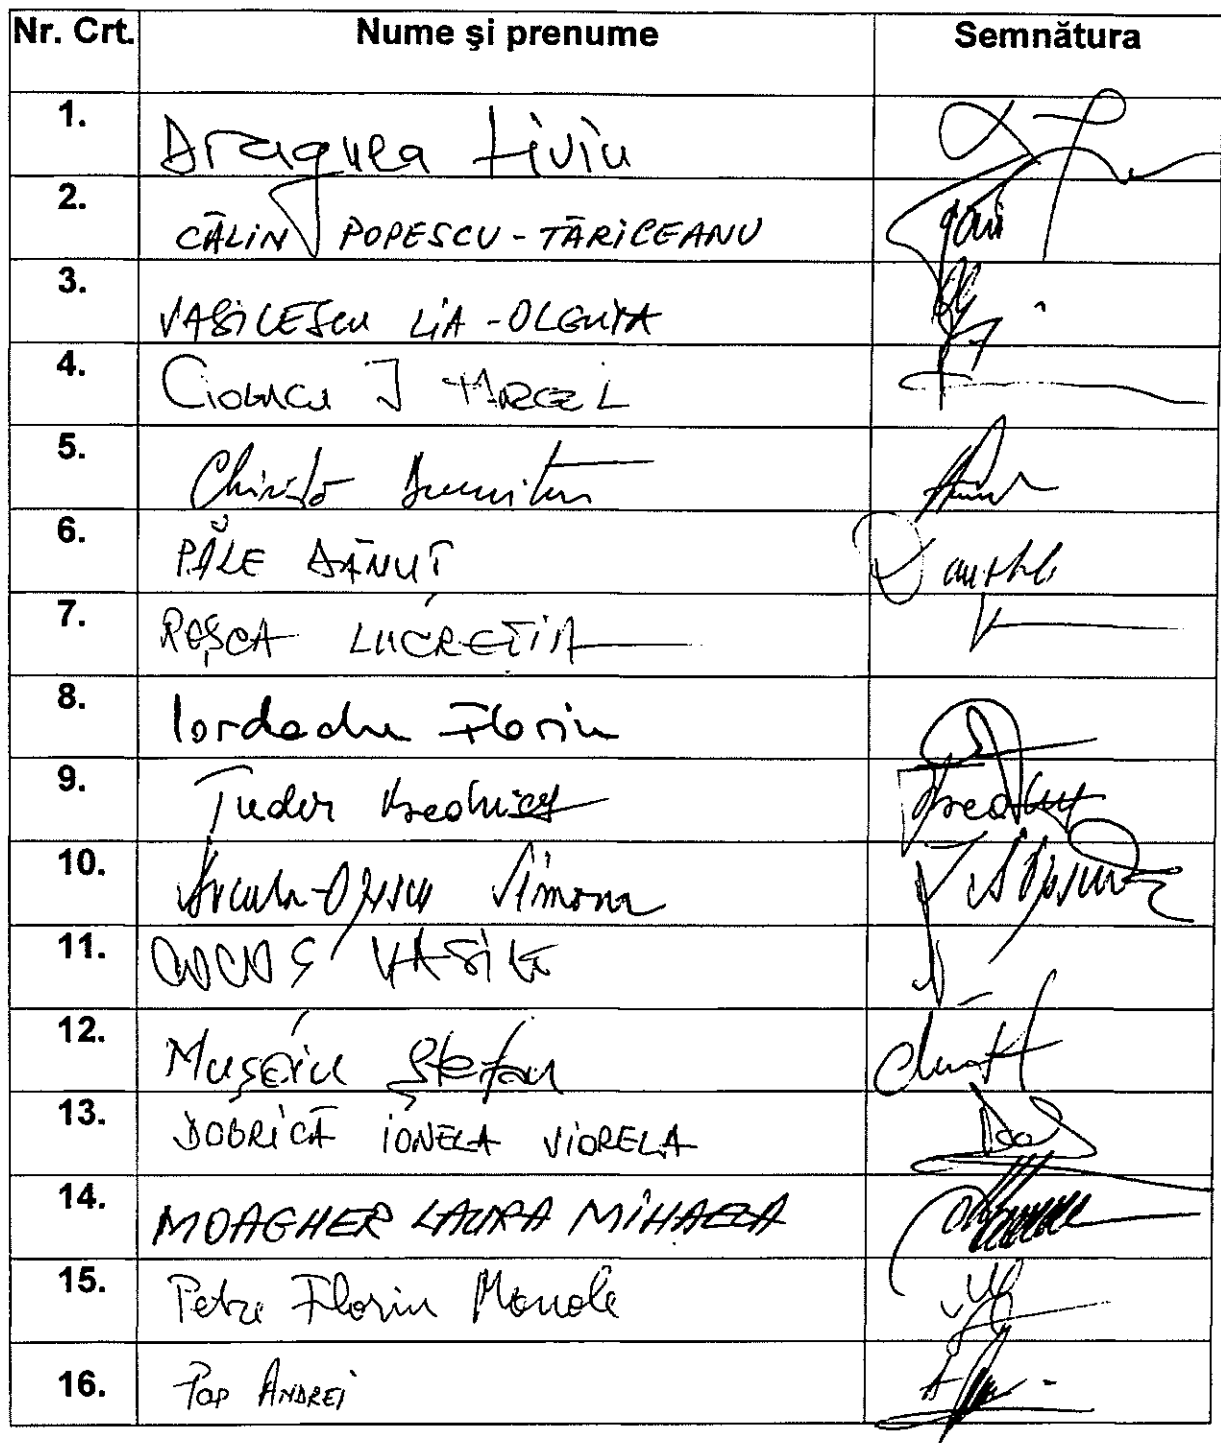 Nr. Crt. Nume și prenume Semnătura
1. Dragnea Liviu
2. CĂLIN POPESCU-TĂRICEANU
3. VASILESCU LIA-OLGUȚA
4. Ciolacu I MARCEL
5. Chiriță Dumitru
6. PĂLE DĂNUȚ
7. ROȘCA LUCREȚIA
8. Iordache Florin
9. Tudor
10. Bucura-Oprescu Simona
11. COCOȘ VASILE
12. Mușoiu Ștefan
13. DOBRICĂ IONELA VIORELA
14. MOAGHER LAURA MIHAELA
15. Petre Florin Manole
16. Pop ANDREI